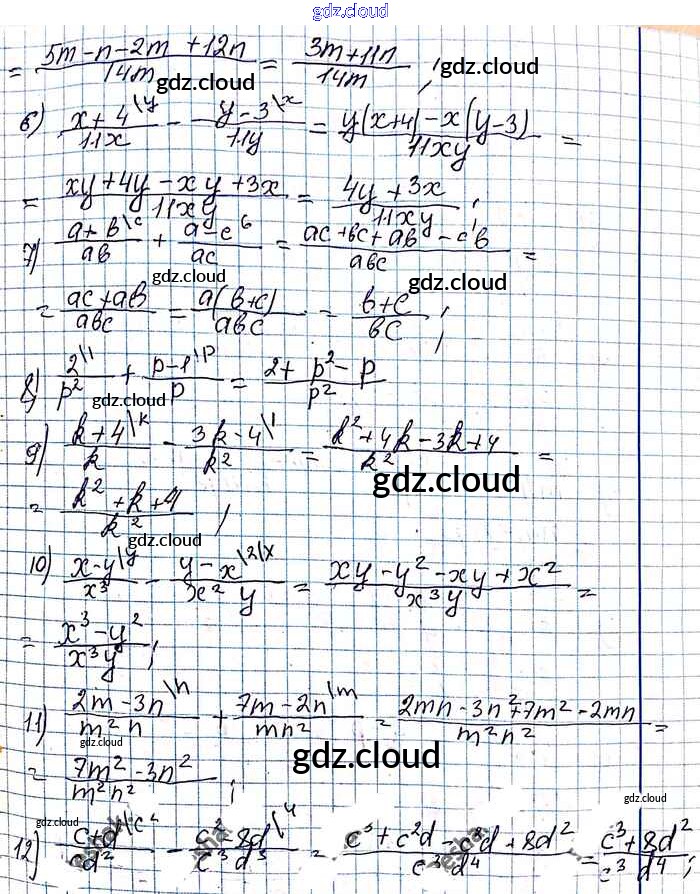 gdz.cloud
= (5m-n-2m+12n)/14m = (3m+11n)/14m ;
gdz.cloud gdz.cloud
6) (x+4\y)/11x - (y-3\x)/11y = (y(x+4)-x(y-3))/11xy =
= (xy+4y-xy+3x)/11xy = (4y+3x)/11xy ;
7) (a+b\c)/ab + (a-c\b)/ac = (ac+bc+ab-cb)/abc =
gdz.cloud
= (ac+ab)/abc = (a(b+c))/abc = (b+c)/bc ;
gdz.cloud
8) 2\1/p² + (p-1\p)/p = (2+p²-p)/p²
gdz.cloud
9) (k+4\k)/k - (3k-4\1)/k² = (k²+4k-3k+4)/k² =
gdz.cloud
= (k²+k+4)/k² ;
gdz.cloud
10) (x-y\y)/x³ - (y-x\2\x)/x²y = (xy-y²-xy+x²)/x³y =
= (x³-y²)/x³y ;
11) (2m-3n\n)/m²n + (7m-2n\m)/mn² = (2mn-3n²+7m²-2mn)/m²n² =
gdz.cloud gdz.cloud
= (7m²-3n²)/m²n² ;
gdz.cloud gdz.cloud
12) (c+d\c²)/cd² - /c³d³ = /c³d⁴ = (c³+8d²)/c³d⁴ ;